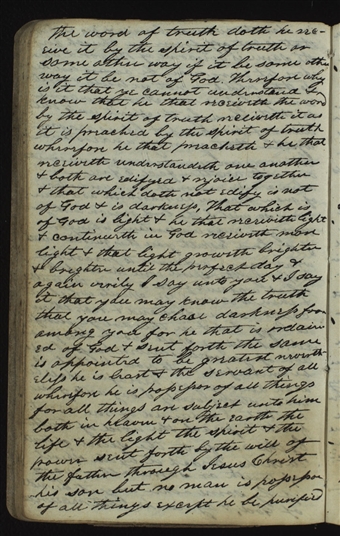 the word of truth doth he rec-
eive it by the spirit of truth or
some other way if it be some other
way it be not of God. Therefore why
is it that ye cannot understand &
know that he that receiveth the word
by the spirit of truth receiveth it as
it is preached by the spirit of truth
wherefore he that preacheth & he that
receiveth understandeth one another
& both are edifyed & rejoice together
& that which doth not edify is not
of God & is darkness, That which is
of God is light & he that receiveth light
& continueth in God receiveth more
light & that light groweth brighter
& brighter until the perfect day &
again verily I say unto you & I say
it that you may know the truth
that you may chase darkness from
among you for he that is ordain
ed of God & sent forth the same
is appointed to be greatest neverth-
eless he is least & the servant of all
wherefore he is possessor of all things
for all things are subject unto him
both in heaven & on the earth the
life & the light the spirit & the
power sent forth by the will of
the father through Jesus Christ
his son but no man is possessor
of all things except he be purified